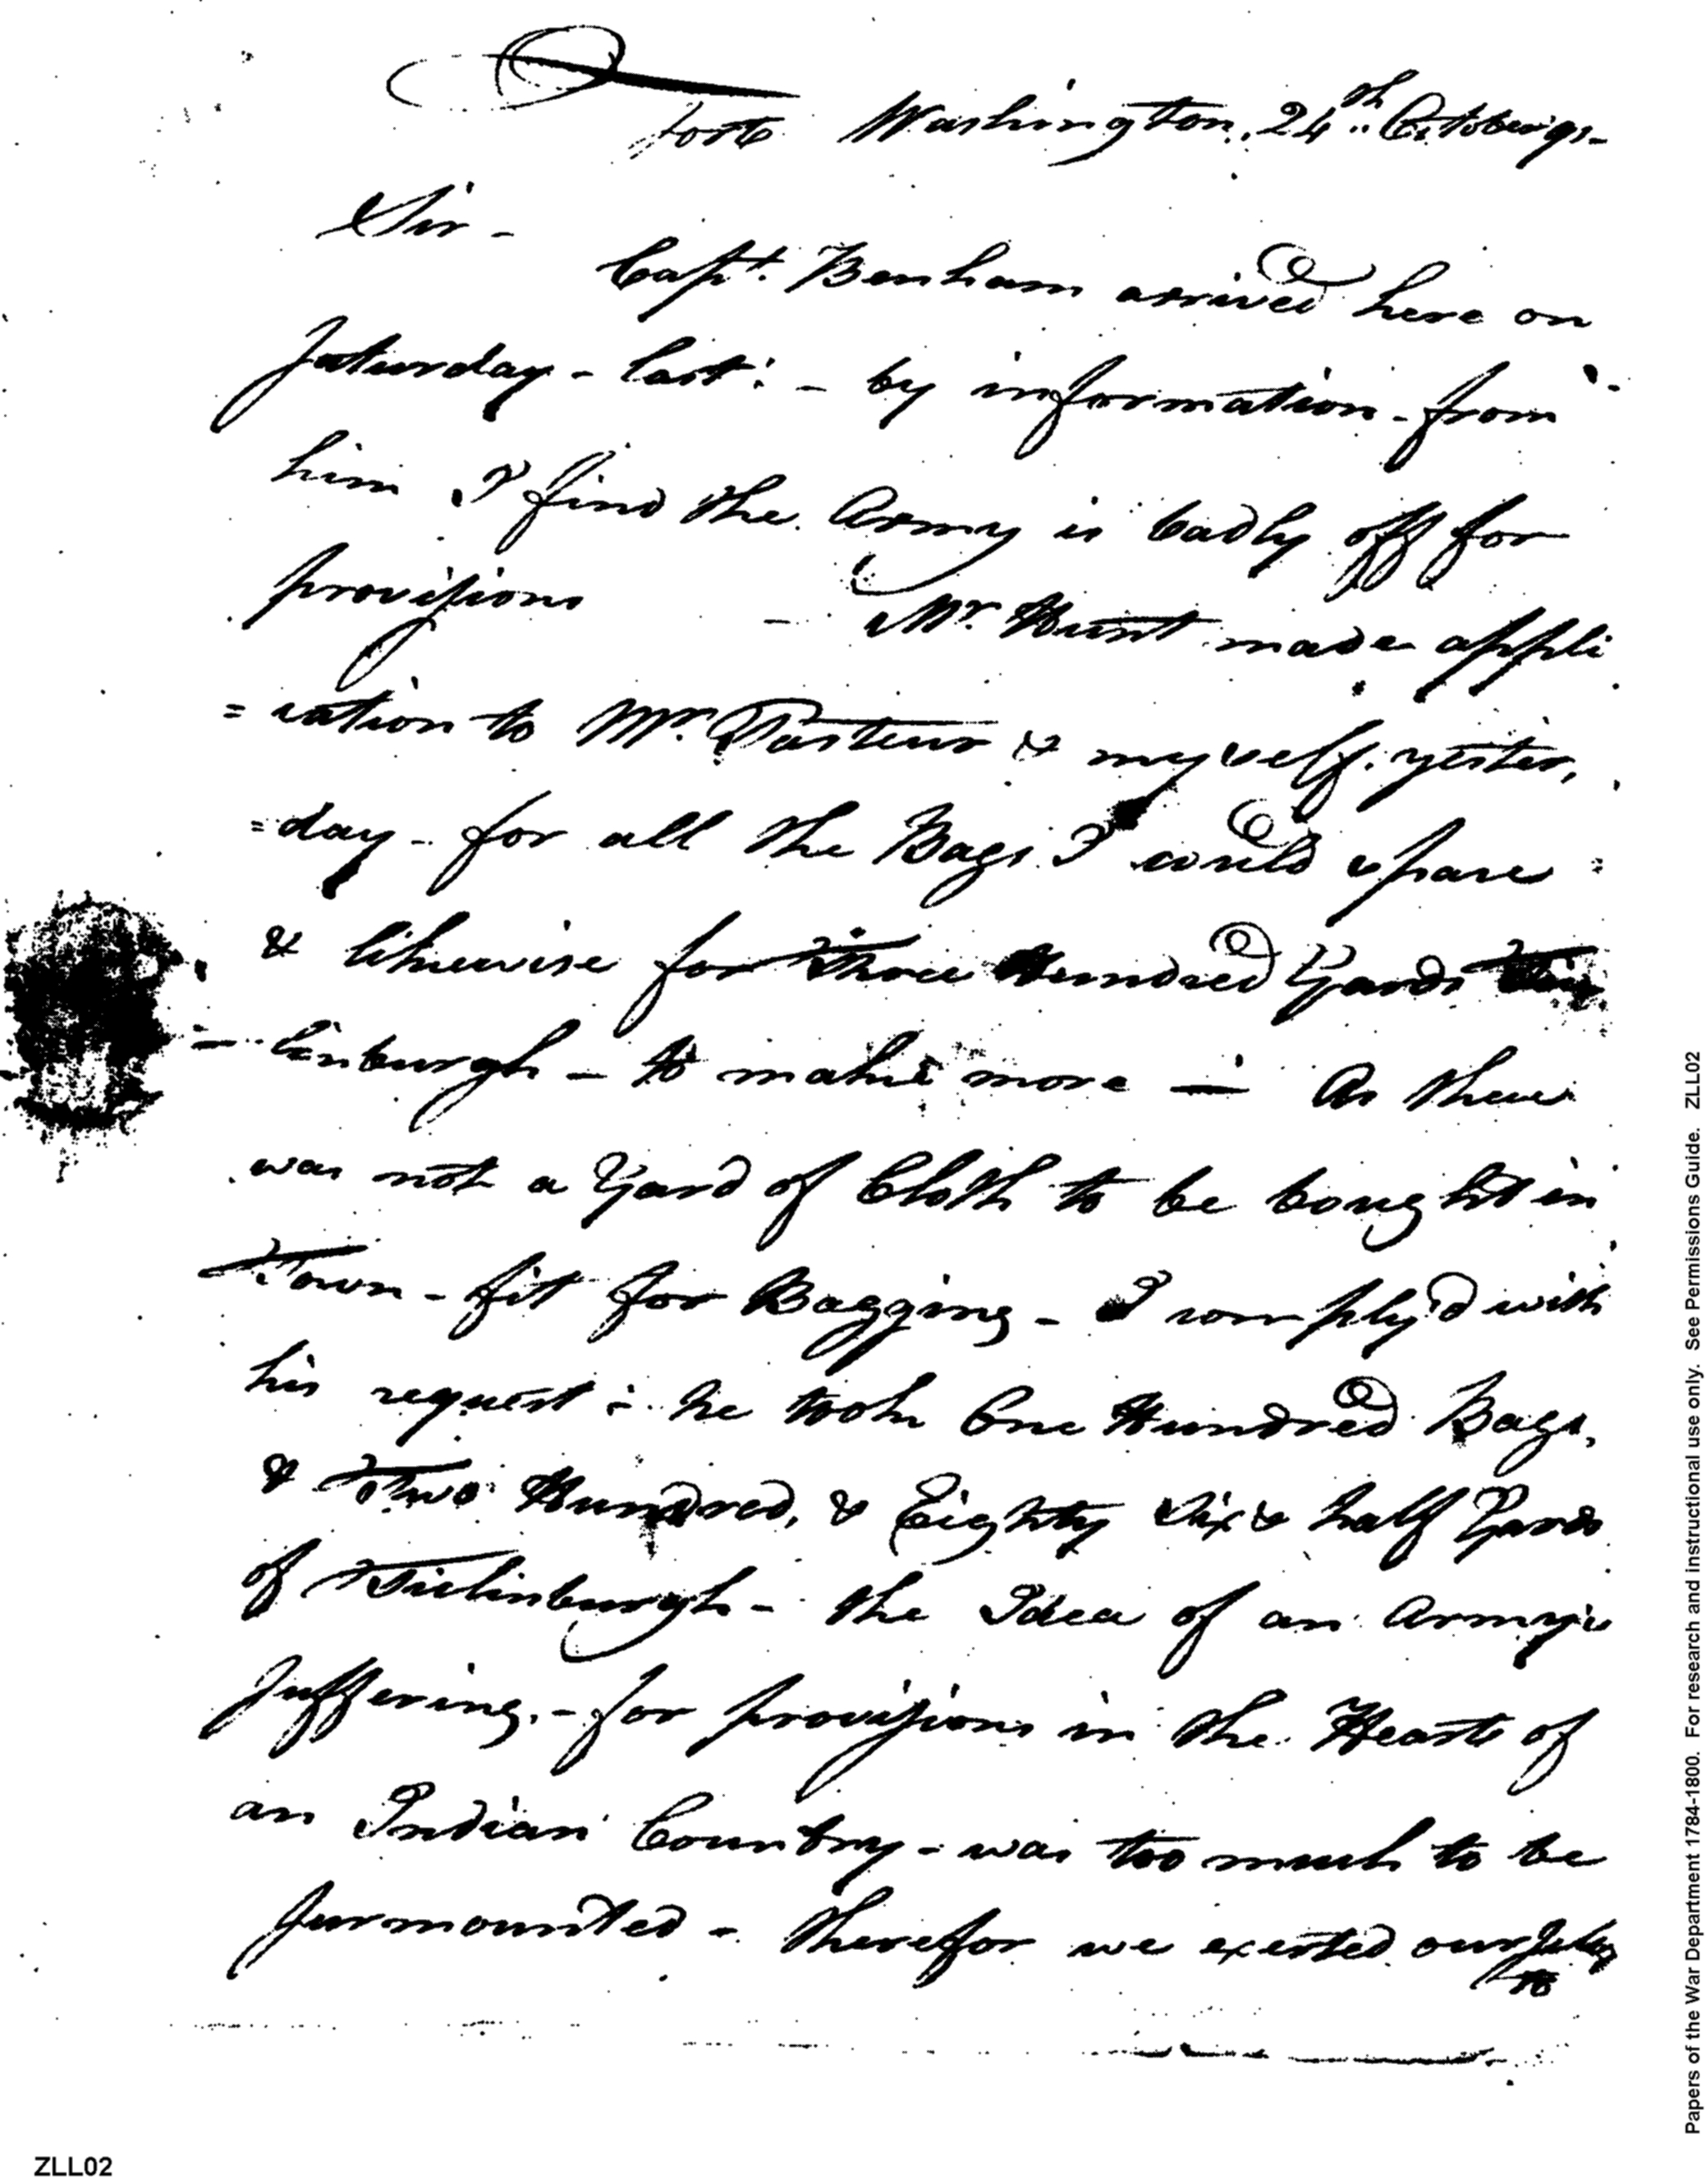 Fort Washington, 24th October 91-
Sir -
Capt. Benham arrived here on
Saturday - last: - by information - from
him I find the Army is badly off for
provisions - Mr. Hunt made appli
= cation to Mr. Pasteur & myself. yester,
= day - for all the Bags I could spare
& likewise for Three Hundred Yards Tic
- linburgh - to make more - As there
was not a Yard of Cloth to be bought in
Town - fit for Bagging - I comply'd with
his request : he took One Hundred Bags,
& Two Hundred, & Eighty Six & half Yards
of Ticlinburgh - the Idea of an Army's
Suffering, - for provisions in the Heart of
an Indian Country - was too much to be
Surmounted - therefor we exerted ourselves
to
ZLL02
Papers of the War Department 1784-1800. For research and instructional use only. See Permissions Guide. ZLL02